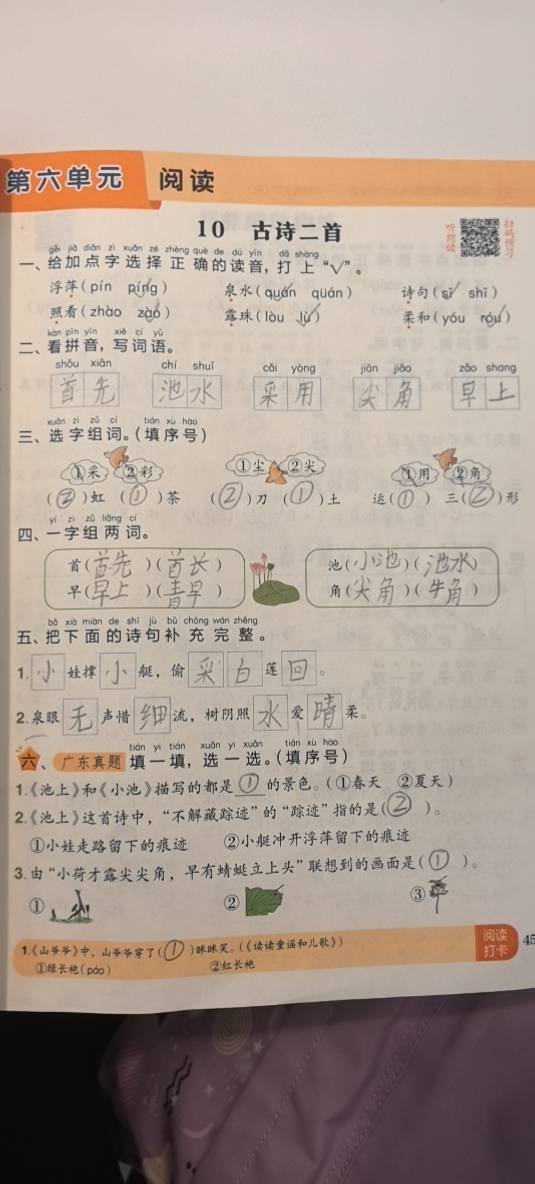 第六单元 阅读
10 古诗二首
听朗读 扫码预习
gěi jiā diǎn zì xuǎn zé zhèng què de dú yīn dǎ shàng
一、给加点字选择正确的读音，打上“√”。
浮萍(pín píng) 泉水(quán qüán) 诗句(sī shī)
照看(zhào zào) 露珠(lòu lù) 柔和(yóu róu)
kàn pīn yīn xiě cí yǔ
二、看拼音，写词语。
shǒu xiān chí shuǐ cǎi yòng jiān jiǎo zǎo shang
首先 池水 采用 尖角 早上
xuǎn zì zǔ cí tián xù hào
三、选字组词。(填序号)
①采 ②彩 ①尘 ②尖 ①用 ②角
(②)虹 (①)茶 (②)刀 (①)土 运(①) 三(②)形
yí zì zǔ liǎng cí
四、一字组两词。
首(首先)(首长) 池(小池)(池水)
早(早上)(青早) 角(尖角)(牛角)
bǎ xià miàn de shī jù bǔ chōng wán zhěng
五、把下面的诗句补充完整。
1.小娃撑小艇，偷采白莲回。
2.泉眼无声惜细流，树阴照水爱晴柔。
tián yi tián xuǎn yi xuǎn tián xù hào
六、广东真题 填一填，选一选。(填序号)
1.《池上》和《小池》描写的都是①的景色。(①春天 ②夏天)
2.《池上》这首诗中，“不解藏踪迹”的“踪迹”指的是(②)。
①小娃走路留下的痕迹 ②小艇冲开浮萍留下的痕迹
3.由“小荷才露尖尖角，早有蜻蜓立上头”联想到的画面是(①)。
① ② ③
1.《山爷爷》中，山爷爷穿了(①)眯眯笑。(《读读童谣和儿歌》)
①绿长袍(páo) ②红长袍
阅读打卡
45